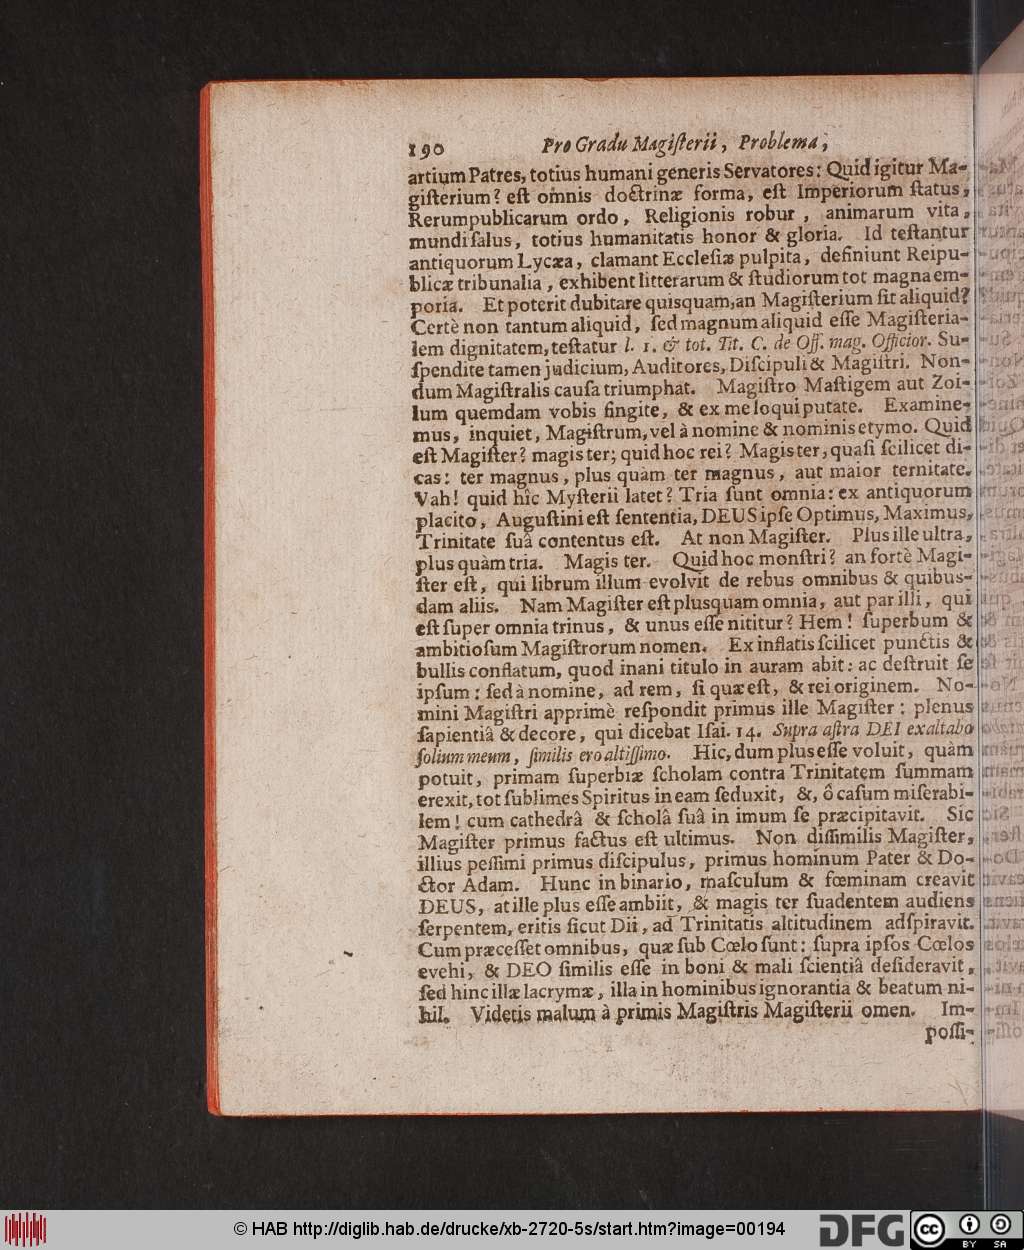 190 Pro Gradu Magiſterii, Problema,
artium Patres, totius humani generis Servatores: Quid igitur Ma-
giſterium? eſt omnis doctrinæ forma, eſt Imperiorum ſtatus,
Rerumpublicarum ordo, Religionis robur, animarum vita,
mundi ſalus, totius humanitatis honor & gloria. Id teſtantur
antiquorum Lycæa, clamant Eccleſiæ pulpita, definiunt Reipu-
blicæ tribunalia, exhibent litterarum & ſtudiorum tot magna em-
poria. Et poterit dubitare quisquam, an Magiſterium ſit aliquid?
Certè non tantum aliquid, ſed magnum aliquid eſſe Magiſteria-
lem dignitatem, teſtatur l. 1. & tot. Tit. C. de Off. mag. Officior. Su-
ſpendite tamen judicium, Auditores, Diſcipuli & Magiſtri. Non-
dum Magiſtralis cauſa triumphat. Magiſtro Maſtigem aut Zoi-
lum quemdam vobis fingite, & ex me loqui putate. Examine-
mus, inquiet, Magiſtrum, vel à nomine & nominis etymo. Quid
eſt Magiſter? magis ter; quid hoc rei? Magis ter, quaſi ſcilicet di-
cas: ter magnus, plus quàm ter magnus, aut maior ternitate.
Vah! quid hîc Myſterii latet? Tria ſunt omnia: ex antiquorum
placito, Auguſtini eſt ſententia, DEUS ipſe Optimus, Maximus,
Trinitate ſuâ contentus eſt. At non Magiſter. Plus ille ultra,
plus quàm tria. Magis ter. Quid hoc monſtri? an fortè Magi-
ſter eſt, qui librum illum evolvit de rebus omnibus & quibus-
dam aliis. Nam Magiſter eſt plusquam omnia, aut par illi, qui
eſt ſuper omnia trinus, & unus eſſe nititur? Hem! ſuperbum &
ambitioſum Magiſtrorum nomen. Ex inflatis ſcilicet punctis &
bullis conflatum, quod inani titulo in auram abit: ac deſtruit ſe
ipſum: ſed à nomine, ad rem, ſi quæ eſt, & rei originem. No-
mini Magiſtri apprimè reſpondit primus ille Magiſter: plenus
ſapientiâ & decore, qui dicebat Iſai. 14. Supra aſtra DEI exaltabo
ſolium meum, ſimilis ero altiſſimo. Hic, dum plus eſſe voluit, quàm
potuit, primam ſuperbiæ ſcholam contra Trinitatem ſummam
erexit, tot ſublimes Spiritus in eam ſeduxit, &, ô caſum miſerabi-
lem! cum cathedrâ & ſcholâ ſuâ in imum ſe præcipitavit. Sic
Magiſter primus factus eſt ultimus. Non diſſimilis Magiſter,
illius peſſimi primus diſcipulus, primus hominum Pater & Do-
ctor Adam. Hunc in binario, maſculum & fœminam creavit
DEUS, at ille plus eſſe ambiit, & magis ter ſuadentem audiens
ſerpentem, eritis ſicut Dii, ad Trinitatis altitudinem adſpiravit.
Cum præceſſet omnibus, quæ ſub Cœlo ſunt: ſupra ipſos Cœlos
evehi, & DEO ſimilis eſſe in boni & mali ſcientiâ deſideravit,
ſed hinc illæ lacrymæ, illa in hominibus ignorantia & beatum ni-
hil. Videtis malum à primis Magiſtris Magiſterii omen. Im-
poſſi-
© HAB http://diglib.hab.de/drucke/xb-2720-5s/start.htm?image=00194
DFG
cc BY SA